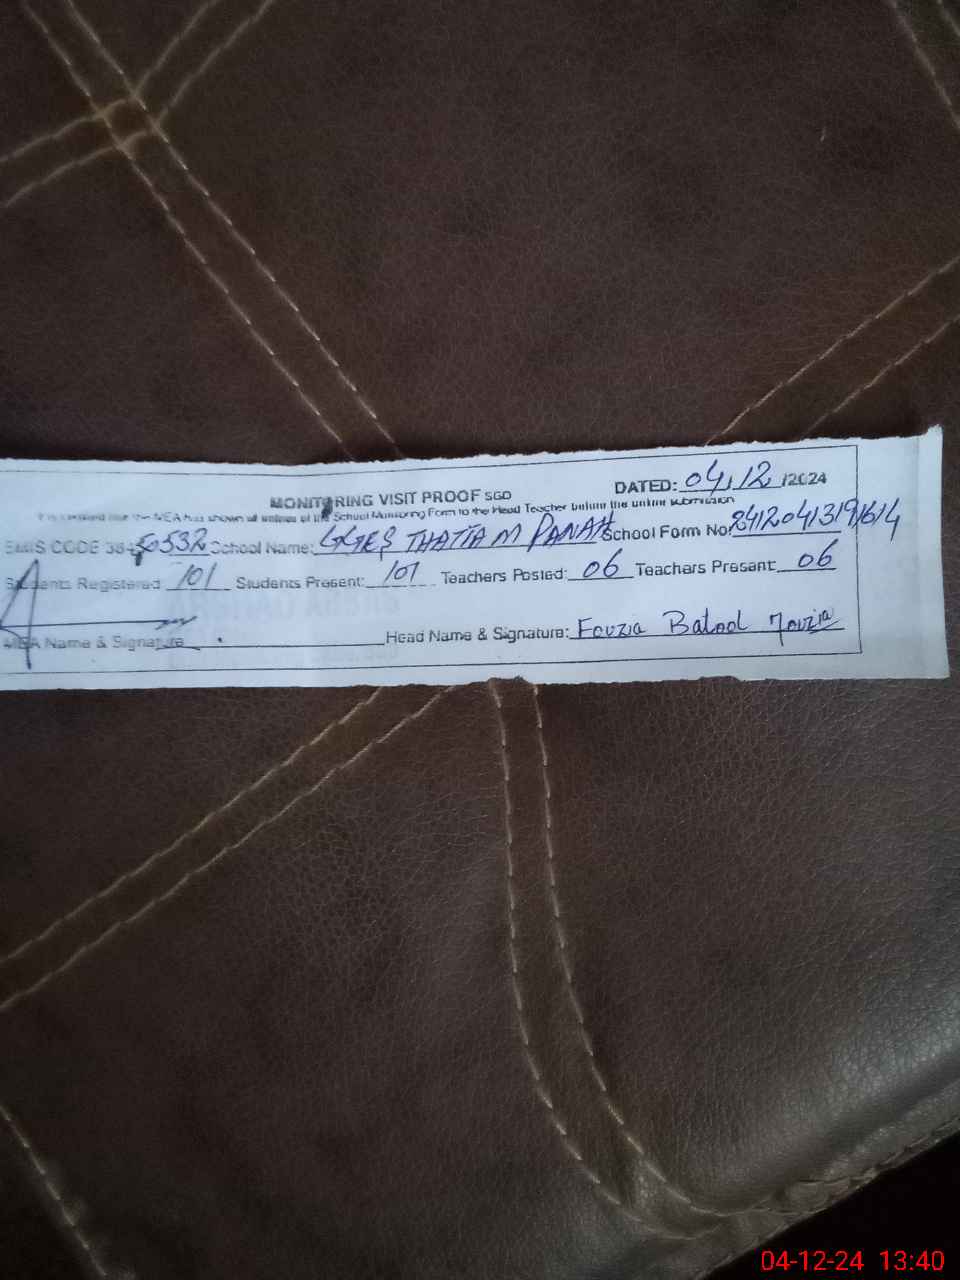 MONITORING VISIT PROOF SGD
DATED: 04,12 /2024
It is certified that the MEA has shown all entries of the School Monitoring Form to the Head Teacher before the online submission
EMIS CODE 384 50532 School Name: GGES THATTA M PANAH School Form No: 24120413191614
Students Registered: 101 Students Present: 101 Teachers Posted: 06 Teachers Present: 06
MEA Name & Signature Head Name & Signature: Fouzia Batool Fouzia
04-12-24 13:40